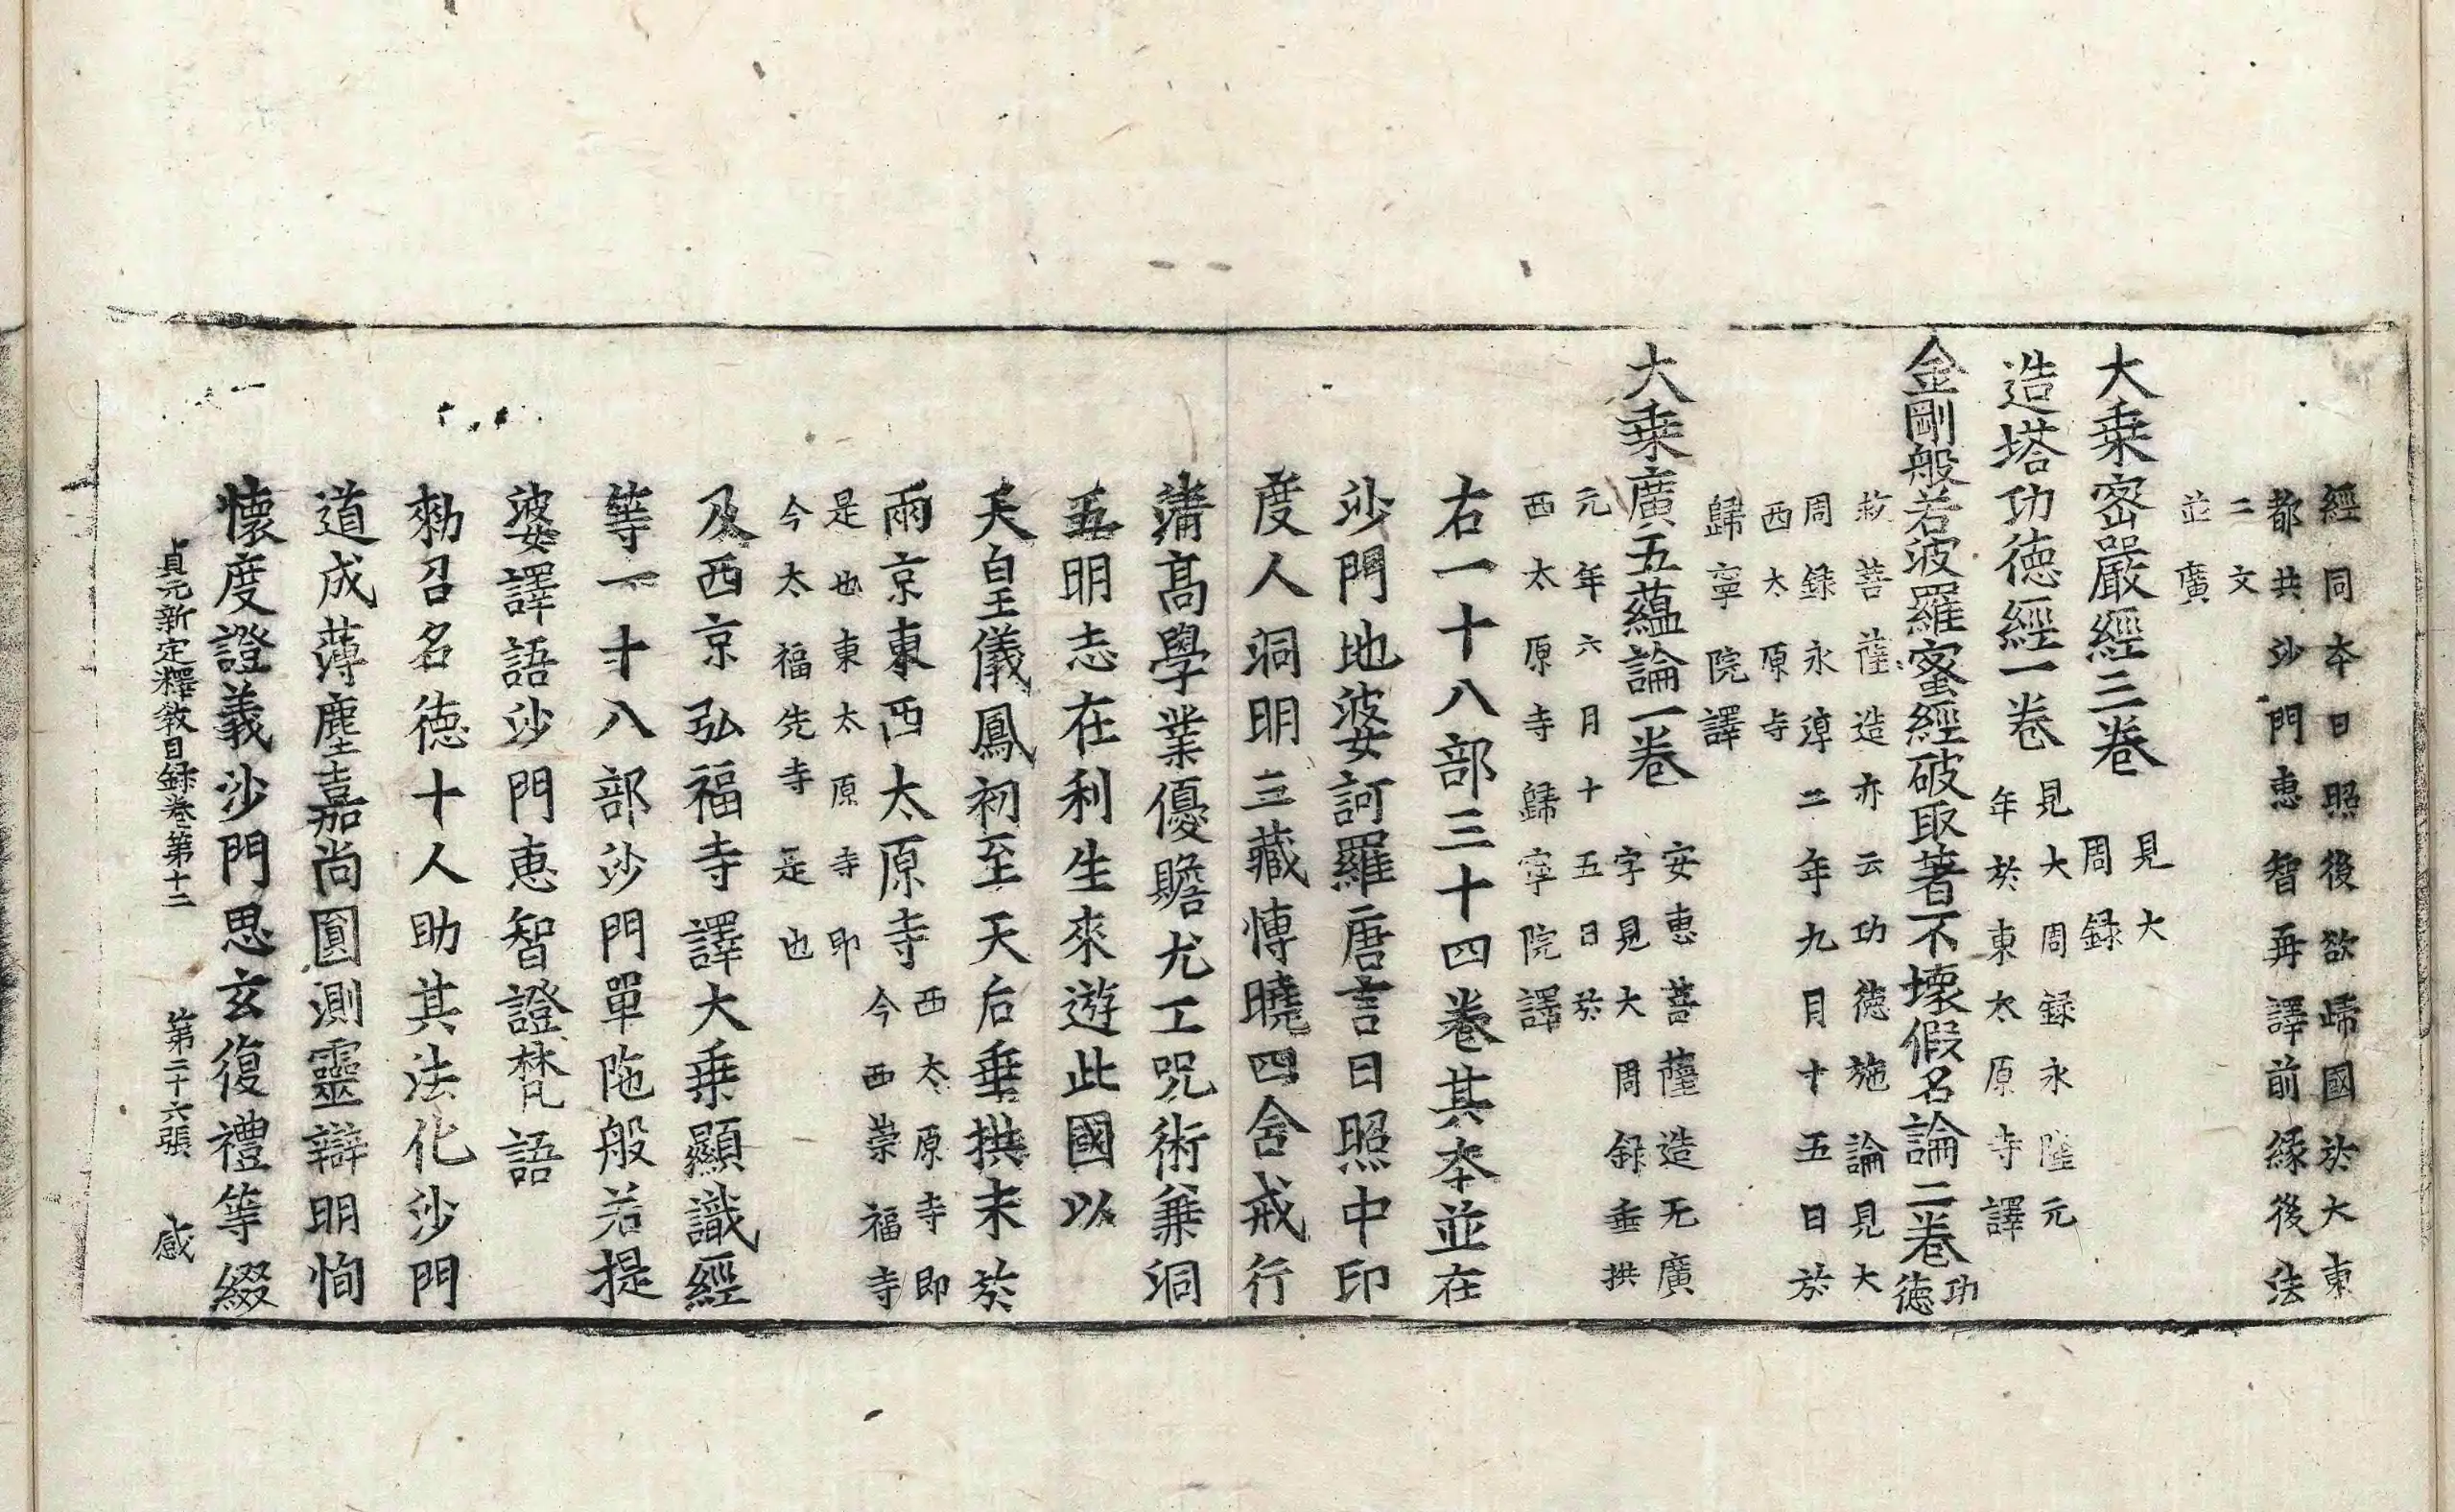 經同本日照後欲歸國於大東
都共沙門惠智再譯前緣後法
二文
並廣
大乗密嚴經三卷
見大
周録
造塔功德經一卷
見大周録永隆元
年於東太原寺譯
金剛般若波羅蜜經破取著不壞假名論二卷
功
德
菩薩造亦云功德施論見大
周録永淳二年九月十五日於
西太原寺
歸寧院譯
大乗廣五蘊論一卷
安惠菩薩造无廣
字見大周録垂拱
元年六月十五日於
西太原寺歸寧院譯
右一十八部三十四卷其本並在
沙門地婆訶羅唐言日照中印
度人洞明三藏博曉四含戒行
清高學業優贍尤工呪術兼洞
五明志在利生來遊此國以
天皇儀鳳初至天后垂拱末於
兩京東西太原寺
西太原寺即
今西崇福寺
是也東太原寺即
今太福先寺是也
及西京弘福寺譯大乗顯識經
等一十八部沙門單陁般若提
婆譯語沙門惠智證梵語
勑召名德十人助其法化沙門
道成薄塵嘉尚圓測靈辯明恂
懷度證義沙門思玄復禮等綴
貞元新定釋敎目録卷第十二 第二十六張 感